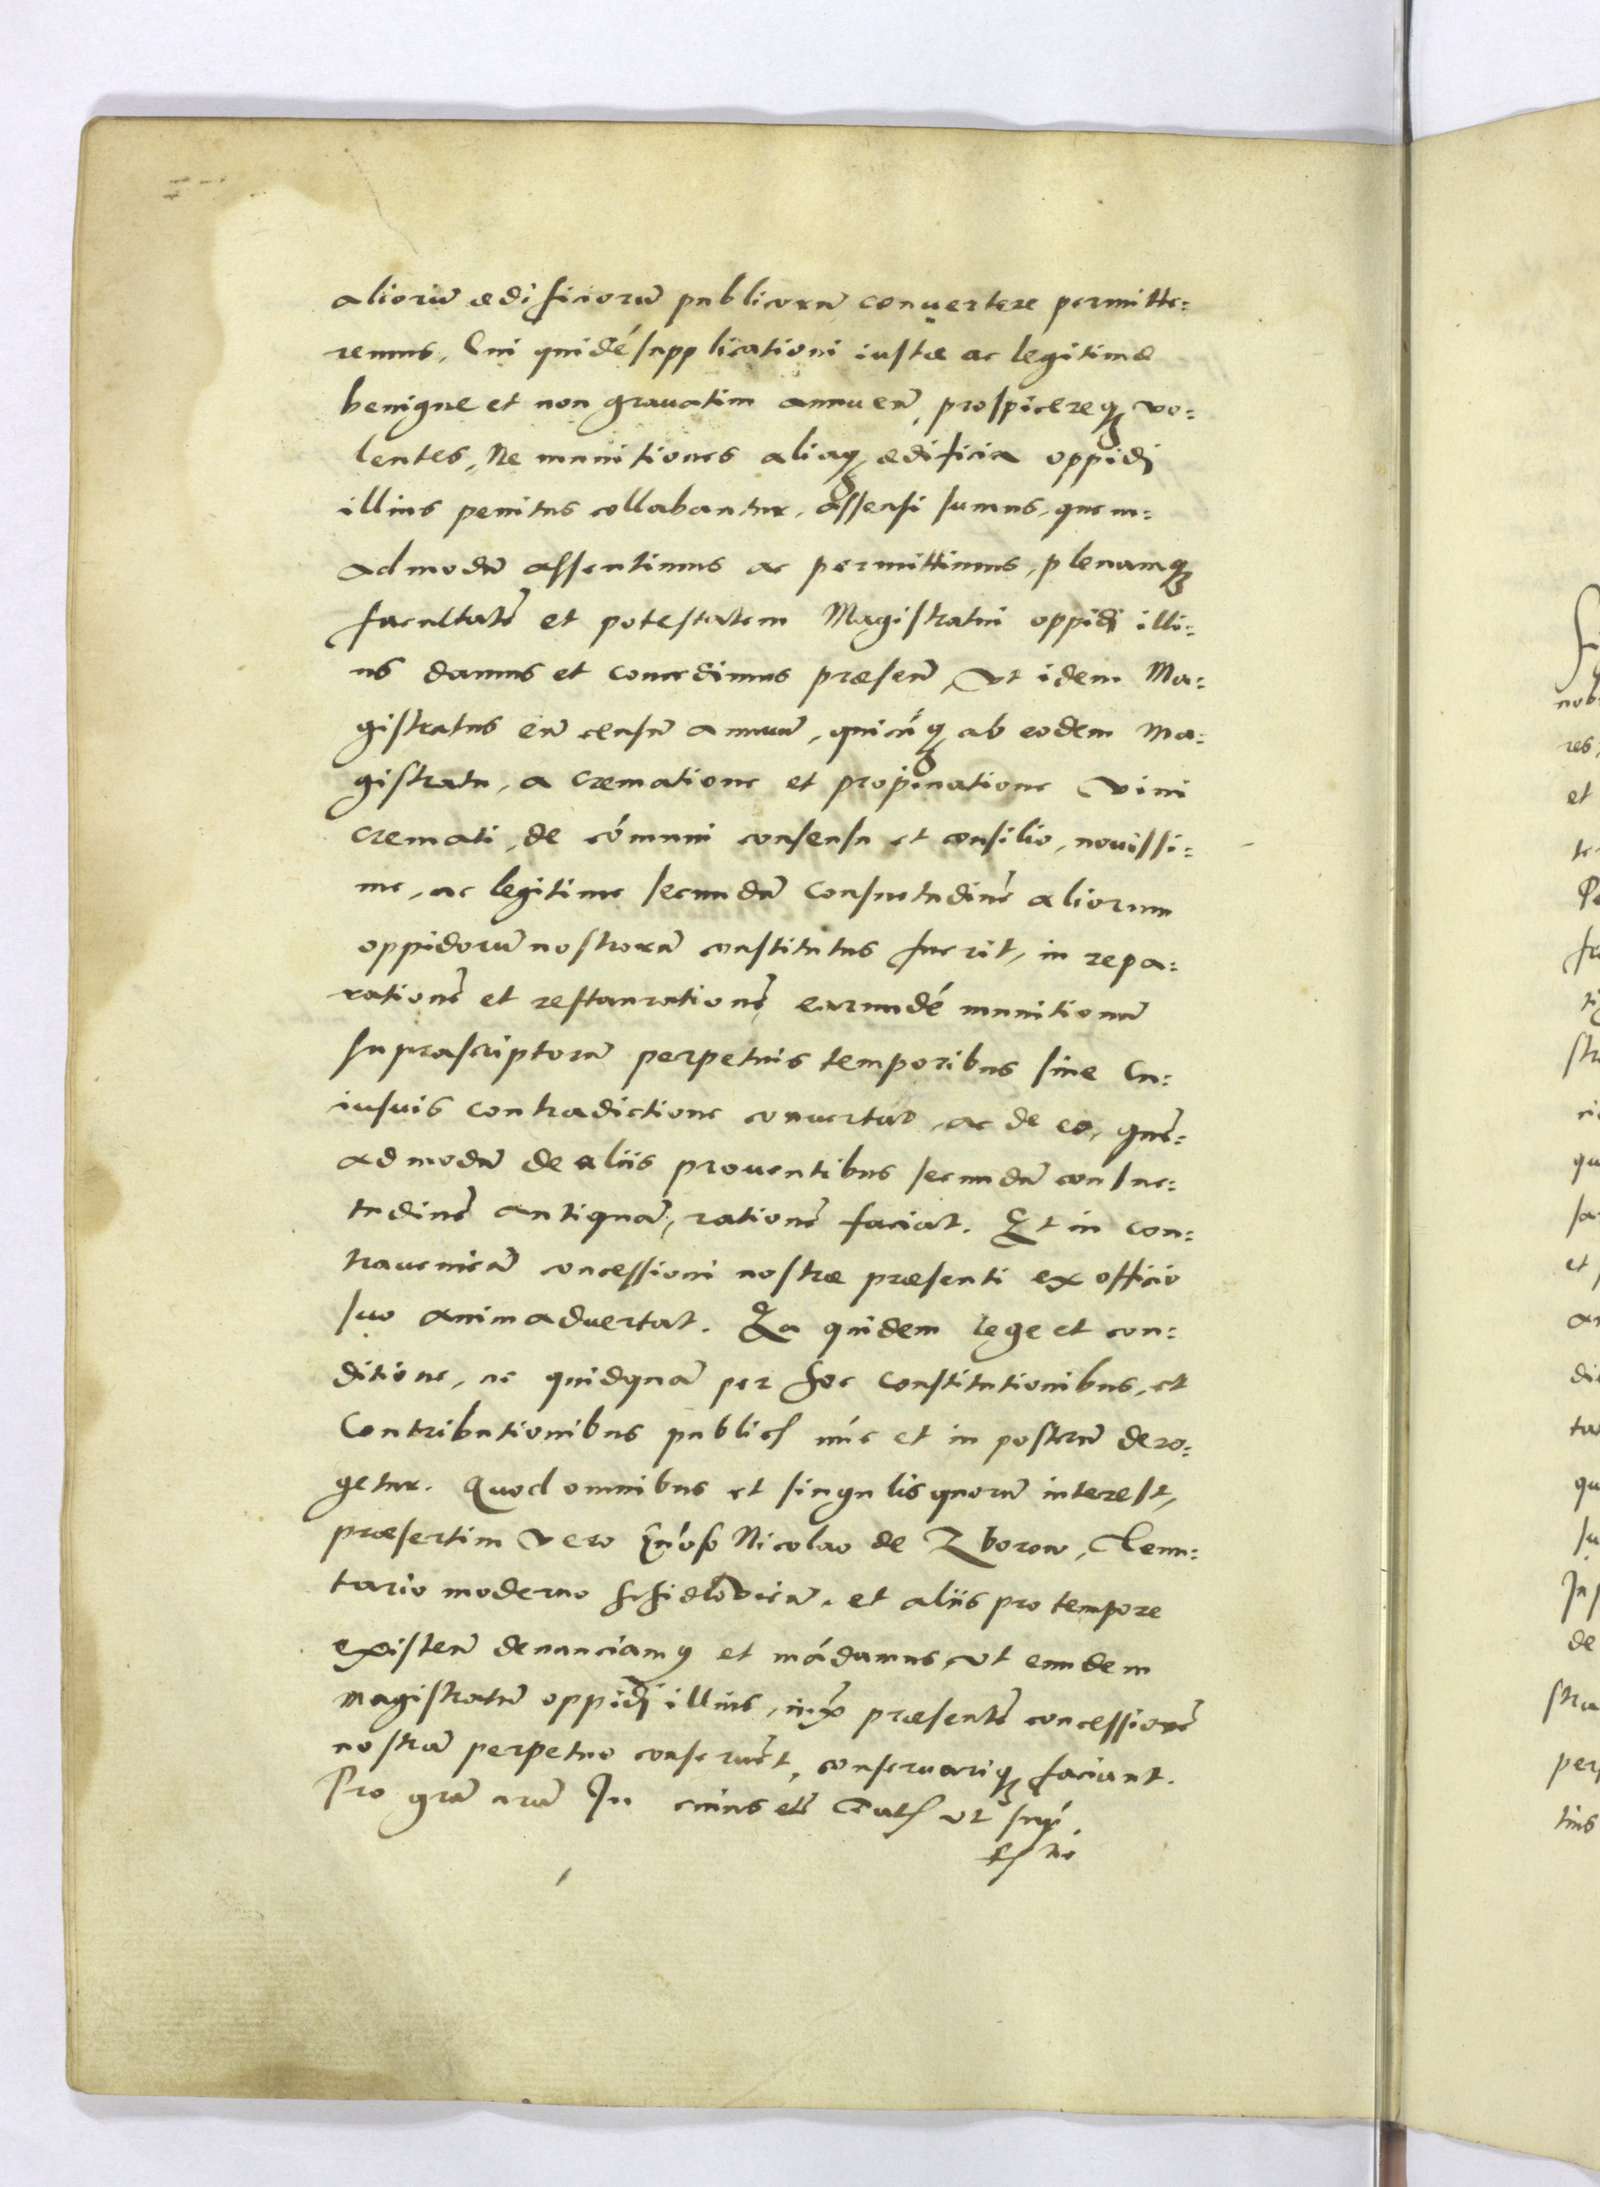 aliorū ædificiorū publicorū convertere permitte=
remus, Cui quidé supplicationi iustæ ac legitimæ
benigne et non gravatim annuen̄, prospicereq₃ vo=
lentes, Ne munitiones aliaq₃ ædificia oppidi
illius penitus collabantur, assensi sumus, quem=
admodū assentimus ac permittimus, plenamq₃
facultatē et potestatem Magistratui oppidi illi=
us damus et concedimus præsen̄, Vt idem Ma=
gistratus eū censū annuū, quicúq₃ ab eodem Ma=
gistratu, a crematione et propinatione Vini
cremati, de cómuni consensu et consilio, novissi=
me, ac legitime secundū consuetudinē aliorum
oppidorū nostrorū constitutus fuerit, in repa=
rationē et restaurationē earundé munitionū
suprascriptorū perpetuis temporibus sine Cu=
iusvis contradictione convertat, ac de eo, quē=
admodū de aliis proventibus secundū consue=
tudinē antiquā, rationē faciat. Et in con=
travenien̄ concessioni nostræ præsenti ex officio
suo animadvertat. Ea quidem lege et con=
ditione, ne quidquā per hoc Constitutionibus, et
Contributionibus publicꝭ núc et in posterū dero=
getur. Quod omnibus et singulis quorū interest,
præsertim vero Gn̄oso Nicolao de Zborow, Tenu=
tario moderno Schidlovien̄, et aliis pro tempore
existen̄ denunciamꝰ et mádamus, vt eundem
Magistratū oppidi illius, iux præsentē concessionē
nostrā perpetuo conservēt, conservariq₃ faciant.
Pro grā nrā In cuius etc̄ Datꝭ vt sup̄.